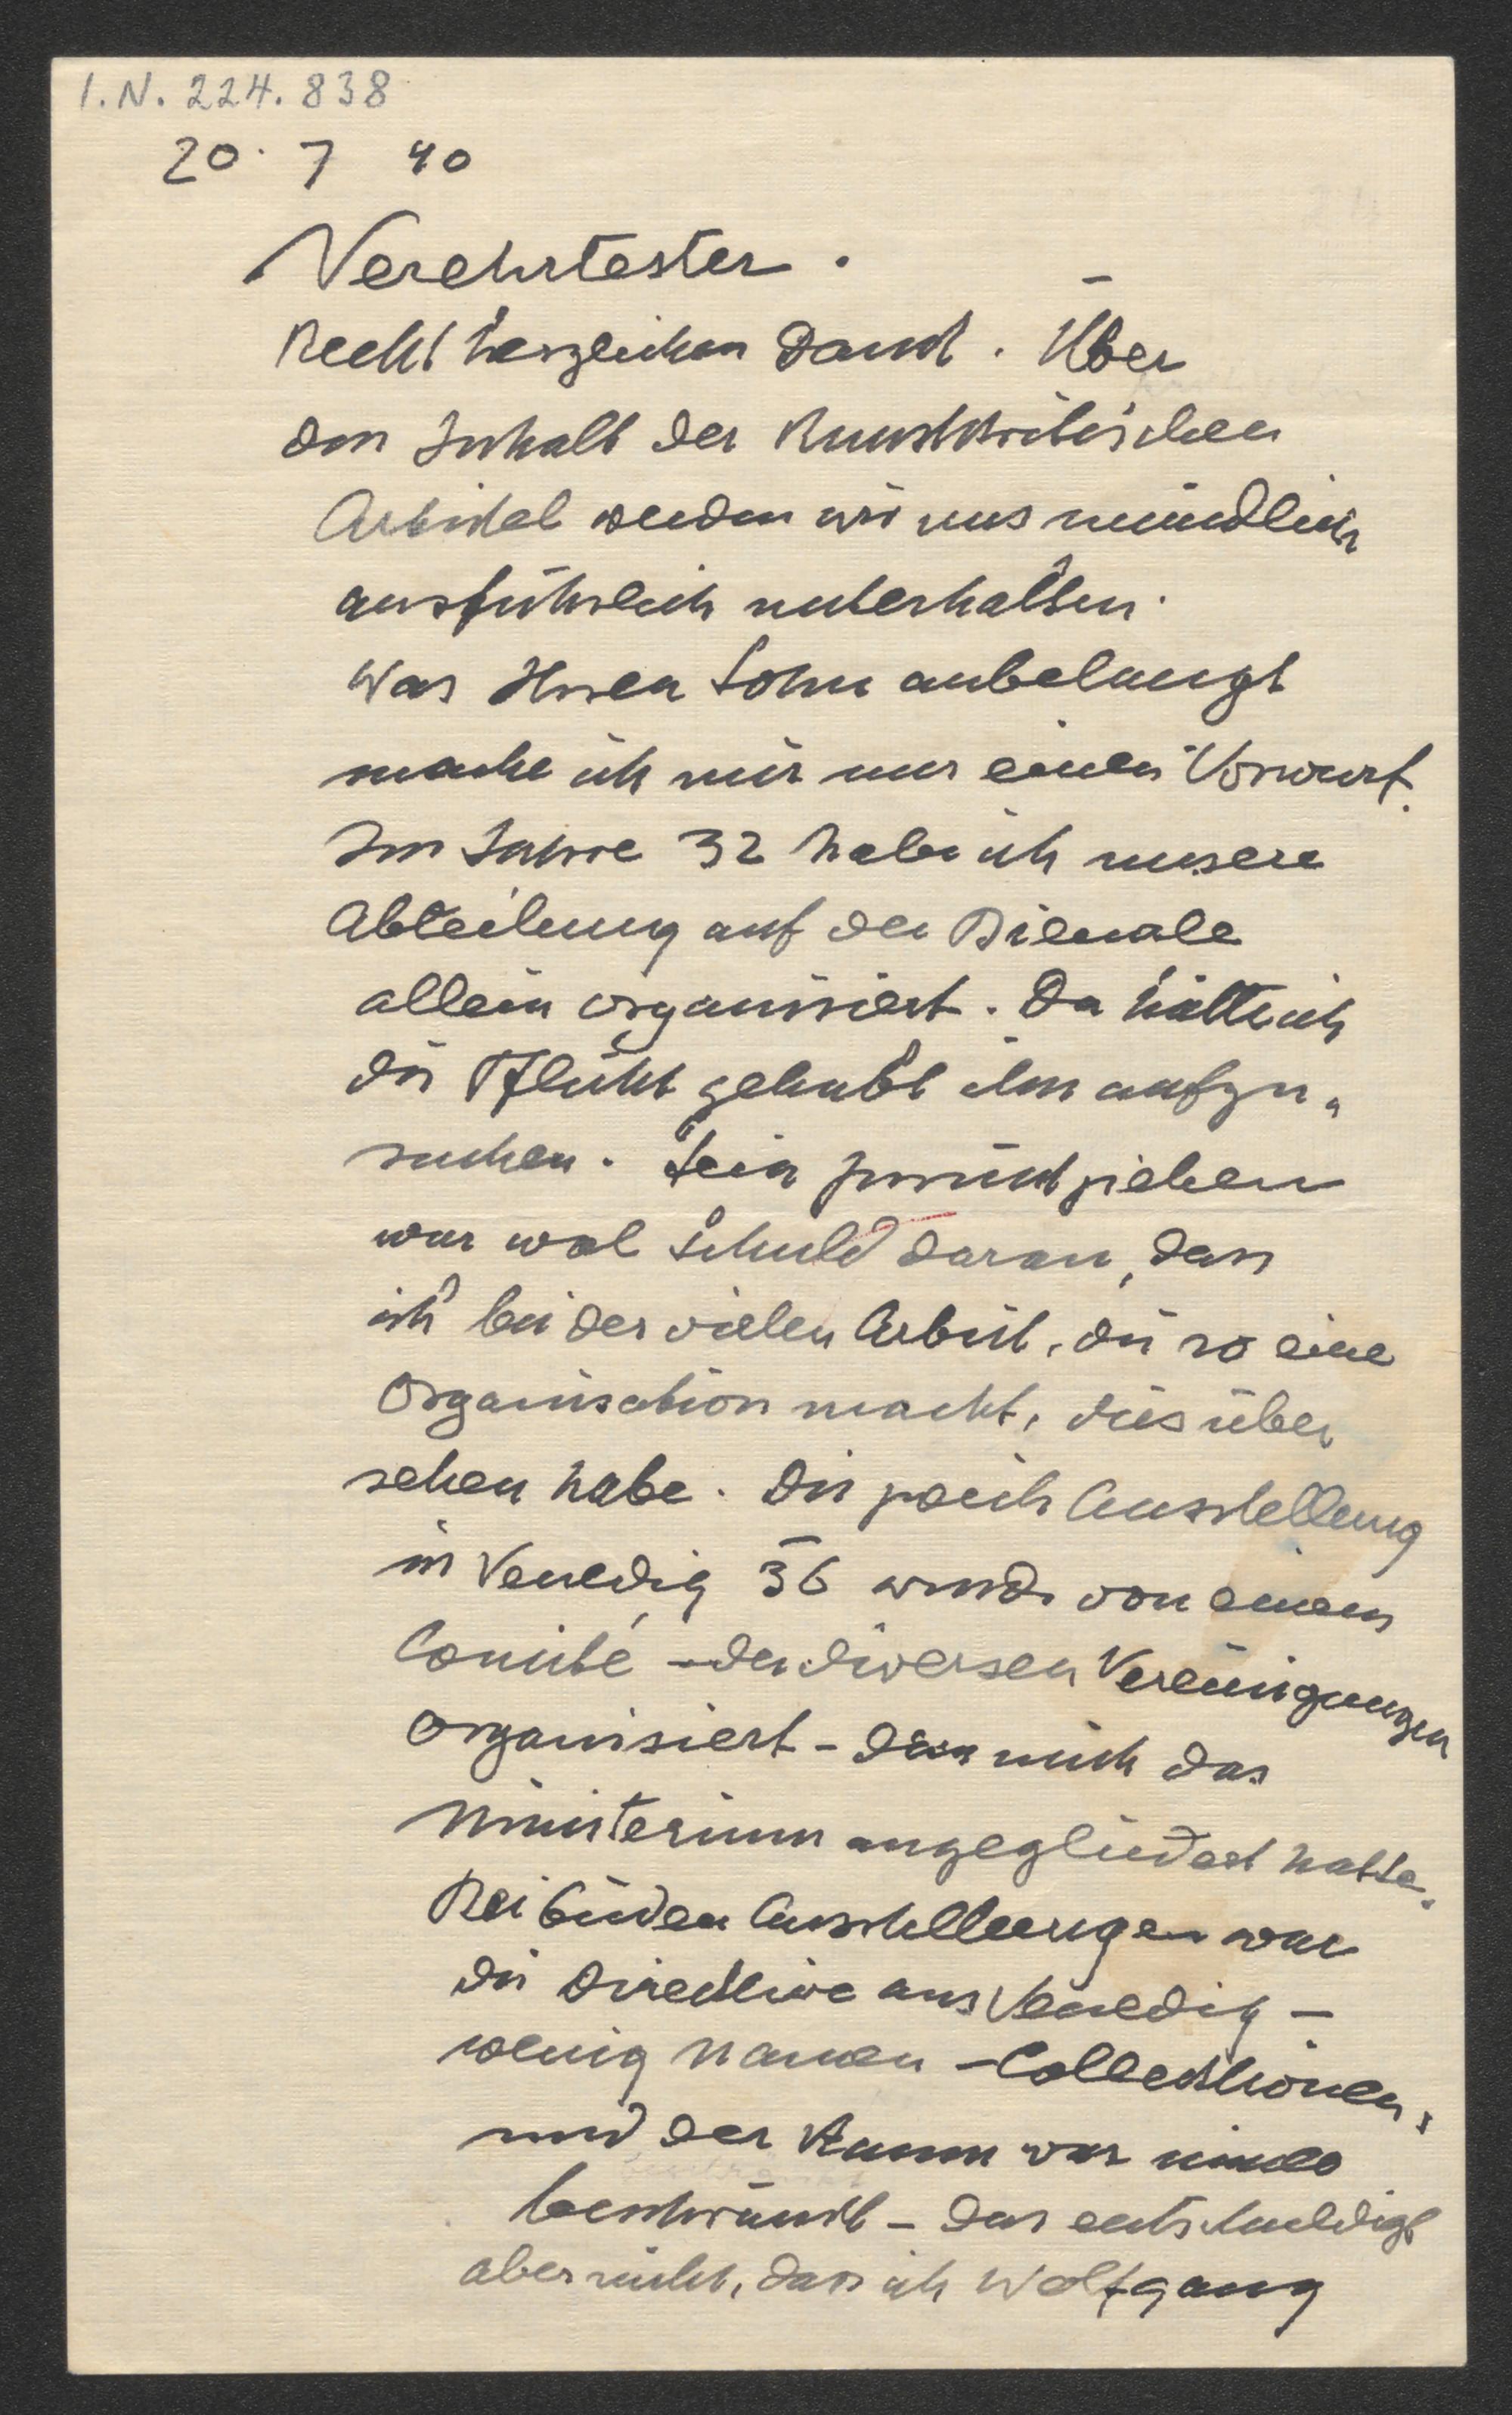 I.N. 224.838
20. 7 40
Verehrtester.
Recht herzlichen Dank. Über
den Inhalt der Kunstkritischen
Artikel werden wir uns mündlich
ausführlich unterhalten.
Was Ihren Sohn anbelangt
mache ich mir nur einen Vorwurf.
Im Jahre 32 habe ich unsere
Abteilung auf der Bienale
allein organisiert. Da hätte ich
die Pflicht gehabt ihn aufzu-
suchen. Sein zurückziehen
war wol schuld daran, dass
ich bei der vielen Arbeit, die so eine
Organisation macht, dies über
sehen habe. Die zweite Ausstellung
in Venedig 36 wurde von einem
Comité - der diversen Vereinigungen
organisiert - dem mich das
Ministerium angegliedert hatte.
Bei beiden Ausstellungen war
die Direktive aus Venedig -
wenig Namen - Collektionen,
und der Raum war
beschränkt - das entschuldigt
aber nicht, dass ich Wolfgang